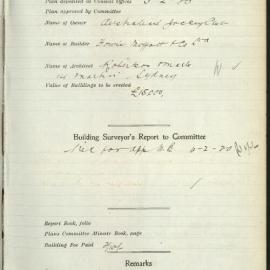 Plan deposited at Council Offices 3-2-20
Plan approved by Committee
Name of Owner Australian Jockey Club
Name of Builder Howie Moffat & Co Ltd
Name of Architect Robertson & Marks
14 Martin Sydney
Value of Buildings to be erected
£16000
Building Surveyor's Report to Committee
Report Book, folio
Plans Committee Minute Book, page
Building Fee Paid
Remarks